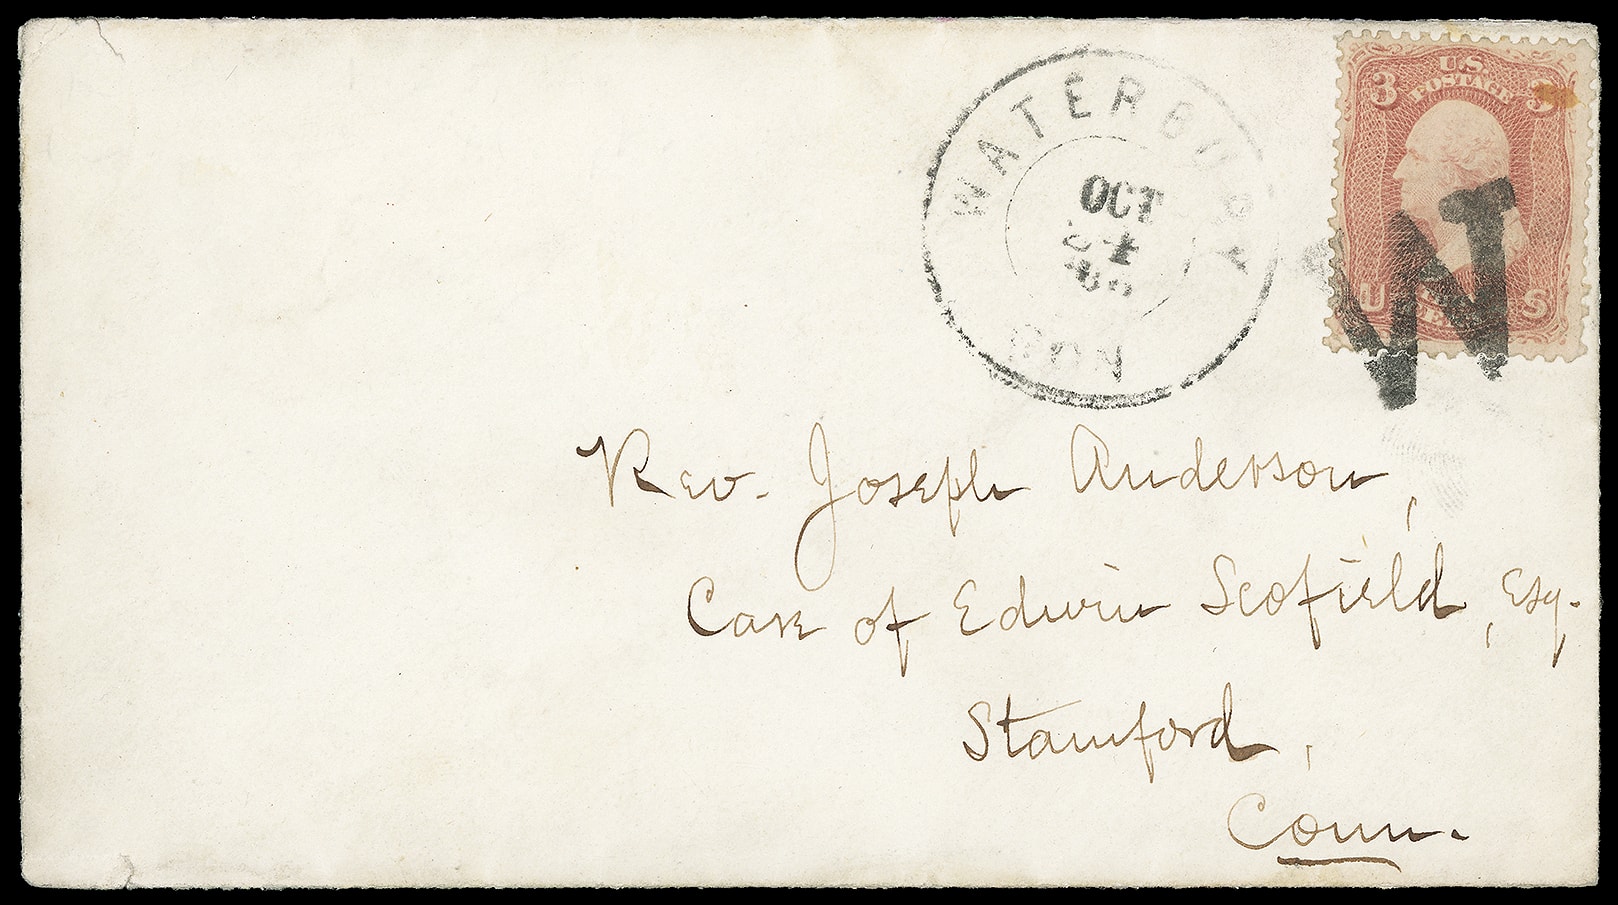 WATERBURY
OCT
CON
3 U.S. POSTAGE 3
U S
N
Rev. Joseph Anderson,
Care of Edwin Scofield, Esq.
Stamford,
Conn.